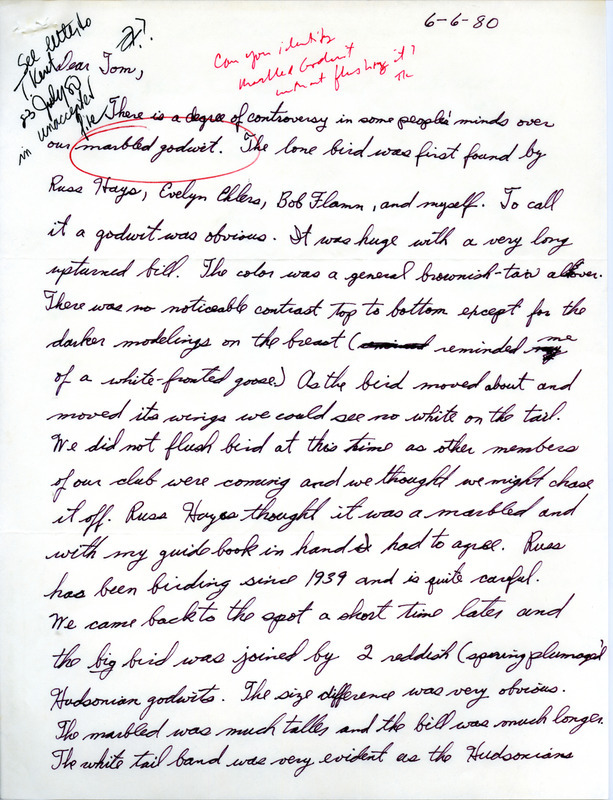 6-6-80
See letter to
Kent
23 July 80
in unaccepted
file
??
Can you identify
Marbled Godwit
without flushing it?
TK
Dear Tom,
There is a degree of controversy in some people's minds over
our marbled godwit. The lone bird was first found by
Russ Hays, Evelyn Ehlers, Bob Flamm, and myself. To call
it a godwit was obvious. It was huge with a very long
upturned bill. The color was a general brownish-tan all over.
There was no noticeable contrast top to bottom except for the
darker modelings on the breast ( reminded me
of a white-fronted goose.) As the bird moved about and
moved its wings we could see no white on the tail.
We did not flush bird at this time as other members
of our club were coming and we thought we might chase
it off. Russ Hays thought it was a marbled and
with my guide book in hand I had to agree. Russ
has been birding since 1939 and is quite careful.
We came back to the spot a short time later and
the big bird was joined by 2 reddish (spering plumage'd
Hudsonian godwits. The size difference was very obvious.
The marbled was much taller and the bill was much longer.
The white tail band was very evident as the Hudsonians